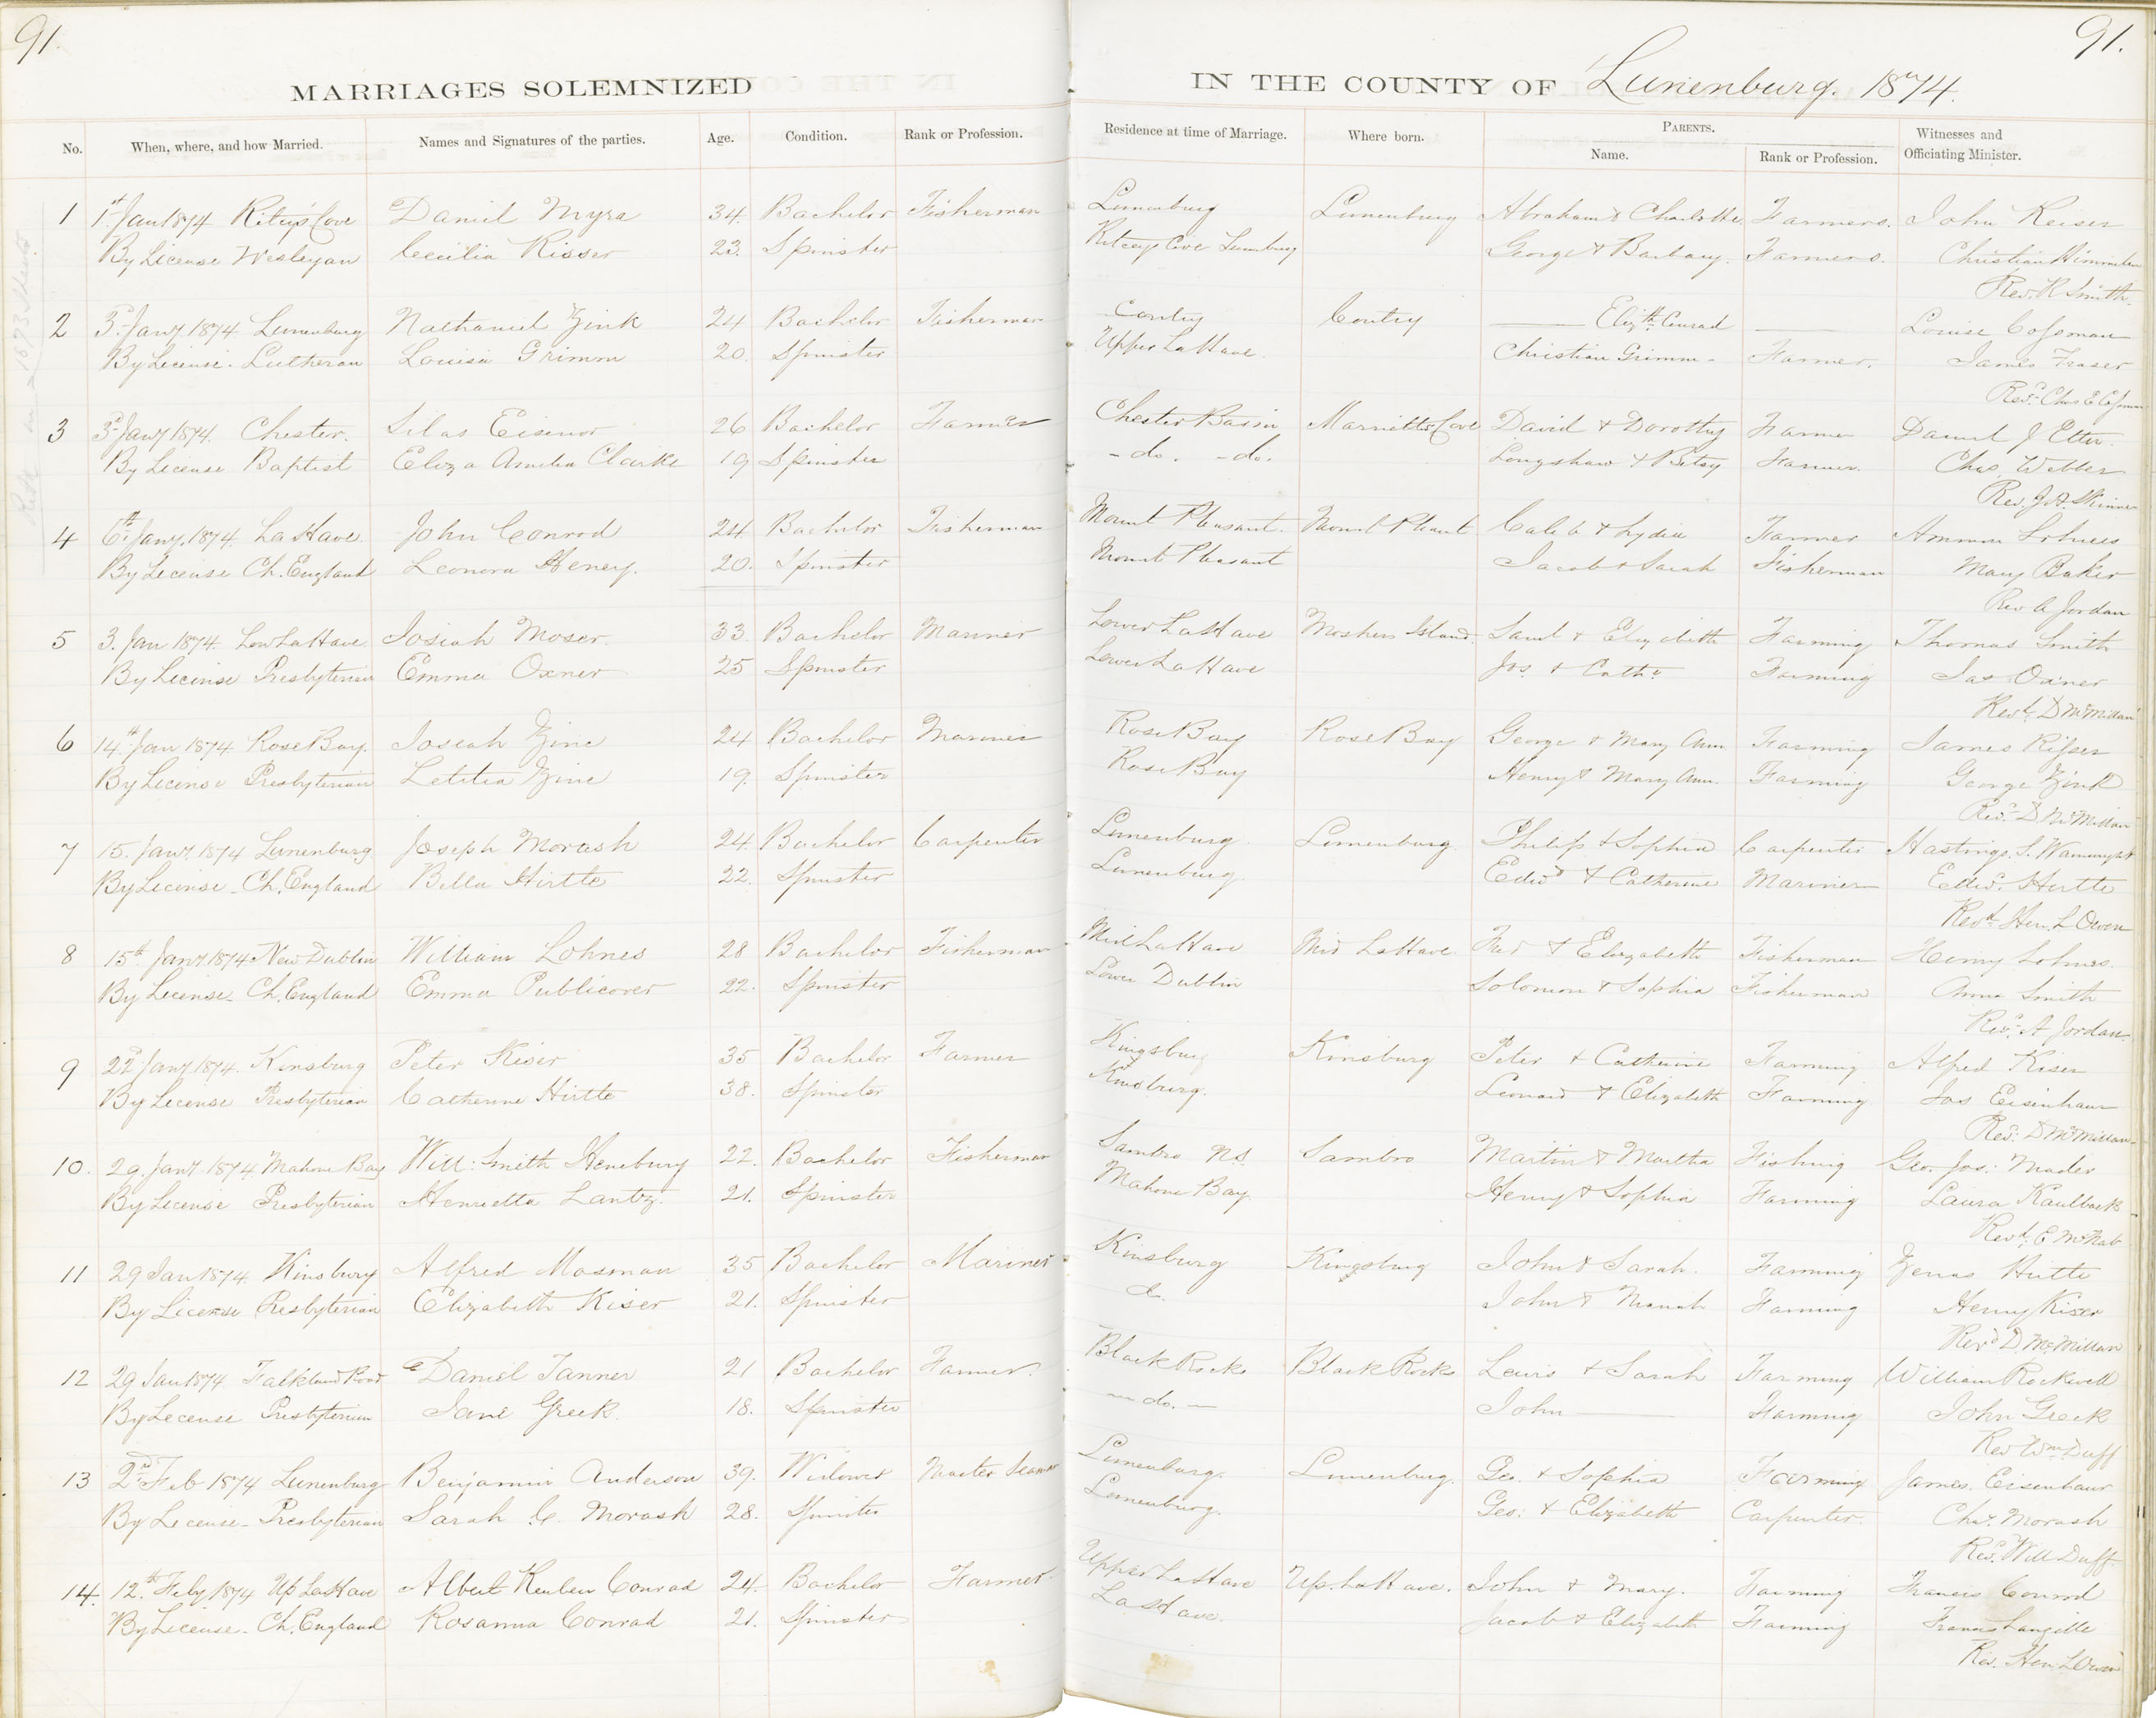 91.
91.
MARRIAGES SOLEMNIZED IN THE COUNTY OF Lunenburg. 1874.
No. When, where, and how Married. Names and Signatures of the parties. Age. Condition. Rank or Profession. Residence at time of Marriage. Where born. PARENTS. Name. Rank or Profession. Witnesses and Officiating Minister.
1 1st Jan 1874 Ritcys Cove Daniel Myra 34. Bachelor Fisherman Lunenburg Lunenburg Abraham & Charlotte. Farmers. John Keiser
By License Wesleyan Cecilia Risser 23. Spinster Ritceys Cove Lunenburg George & Barbary. Farmers. Christian Himmelman
Rev. R Smith.
2 3d Jany 1874 Lunenburg Nathaniel Zink 24 Bachelor Fisherman Contry Contry Elizth Conrad Louise Cossman
By License. Lutheran Louisa Grimm 20. Spinster Upper LaHave. Christian Grimm - Farmer. James Fraser
Revd Chas E Cossman
3 3d Jany 1874. Chester. Silas Eisenor 26 Bachelor Farmer Chester Basin Marriotts Cove David & Dorothy Farmer Daniel J Etter.
By License Baptist Eliza Amelia Clarke 19 Spinster - do. - do. Longshaw & Betsy Farmer. Chas Webber
Rev. J. A. Skinner
4 6th Jany. 1874. LaHave. John Conrod 24 Bachelor Fisherman Mount Pleasant. Mount Pleasant Caleb & Lydia Farmer Ammon Lohnes
By License Ch. England Leonora Heney. 20. Spinster Mount Pleasant Jacob & Sarah Fisherman Mary Baker
Rev A Jordan
5 3. Jan 1874. Low LaHave Josiah Moser. 33. Bachelor Mariner Lower LaHave Moshers Island. Saml & Elizabeth Farming Thomas Smith
By License Presbyterian Emma Oxner 25 Spinster Lower LaHave Jos. & Cathe Farming Jas Oxner
Revd D McMillan
6 14th Jan 1874 Rose Bay. Joseah Zinc 24 Bachelor Mariner Rose Bay Rose Bay George & Mary Ann Farming James Risser
By License Presbyterian Letitia Zinc 19. Spinster Rose Bay Henry & Mary Ann. Farming George Zink
Revd D McMillan
7 15. Jany. 1874 Lunenburg Joseph Morash 24. Bachelor Carpenter Lunenburg. Lunenburg Philip & Sophia Carpenter Hastings S. Wainwright
By License - Ch. England Bella Hirtle 22. Spinster Lunenburg. Edwd & Catherine Mariner Edwd. Hirtle
Revd Hen. L Owen
8 15th Jany. 1874 New Dublin William Lohnes 28 Bachelor Fisherman Mid LaHave Mid LaHave Fred & Elizabeth Fisherman Henry Lohnes.
By License - Ch. England Emma Publicover 22. Spinster Lower Dublin Solomon & Sophia Fisherman Anna Smith
Revd A Jordan.
9 22d Jany 1874. Kinsburg Peter Kiser 35 Bachelor Farmer Kingsburg Kinsburg Peter & Catherine Farming Alfred Kiser
By License Presbyterian Catherine Hirtle 38. Spinster Kinsburg. Leonard & Elizabeth Farming Jas Eisenhaur
Revd. D McMillan
10. 29. Jany. 1874 Mahone Bay Will: Smith Heneburg 22. Bachelor Fisherman Sambro N.S. Sambro Martin & Martha Fishing Geo. Jos: Mader
By License Presbyterian Henrietta Lantz. 21. Spinster Mahone Bay Henry & Sophia Farming Laura Kaulback
Revd. E McNab
11 29 Jan 1874 Kinsburg Alfred Mosman 35 Bachelor Mariner Kinsburg Kingsburg John & Sarah. Farming Zenas Hirtle
By License Presbyterian Elizabeth Kiser 21. Spinster do. John & Farming Henry Kiser
Revd D McMillan
12 29 Jan 1874 Falkland Road Daniel Tanner 21 Bachelor Farmer. Black Rocks Black Rocks Lewis & Sarah Farming William Rockwell
By License Presbyterian Jane Greek. 18. Spinster — do. — John Farming John Greek
Rev Wm Duff
13 2d Feb 1874 Lunenburg Benjamin Anderson 39. Widower Master Seaman Lunenburg. Lunenburg. Geo. & Sophia Farming James. Eisenhaur
By License - Presbyterian Sarah C. Morash 28. Spinster Lunenburg. Geo: & Elizabeth Carpenter. Chas. Morash
Revd. Will Duff
14. 12th Feby 1874 Up LaHave Albert Reuben Conrad 24. Bachelor Farmer Upper LaHave Up. LaHave. John & Mary. Farming Francis Conrod
By License - Ch. England Rosanna Conrad 21. Spinster LaHave. Jacob & Elizabeth Farming Francis Langille
Rev. Hen L Owen